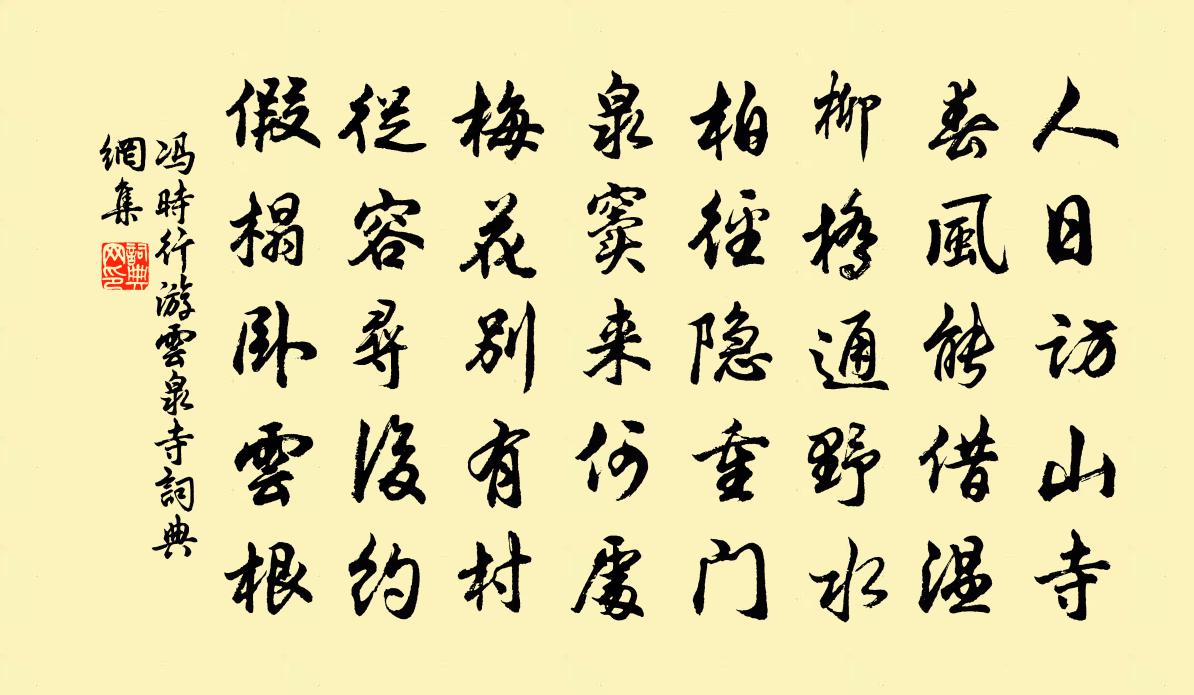 人日访山寺
春風能借温
柳橋通野水
柏徑隐重门
泉窦来何處
梅花别有村
従容尋後约
假榻卧雲根
冯時行游雲泉寺詞典
網集
詞典网印